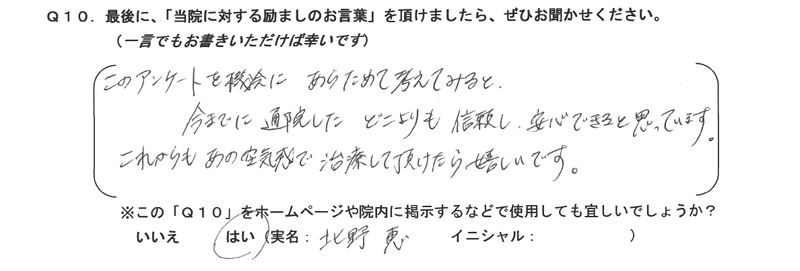 Q10．最後に、「当院に対する励ましのお言葉」を頂けましたら、ぜひお聞かせください。
（一言でもお書きいただけば幸いです）
このアンケートを機会に あらためて考えてみると、
今までに 通院した どこよりも 信頼し、安心できると思っています。
これからも あの空気感で 治療して頂けたら嬉しいです。
※この「Q10」をホームページや院内に掲示するなどで使用しても宜しいでしょうか？
いいえ はい（実名：北野 恵 イニシャル： ）